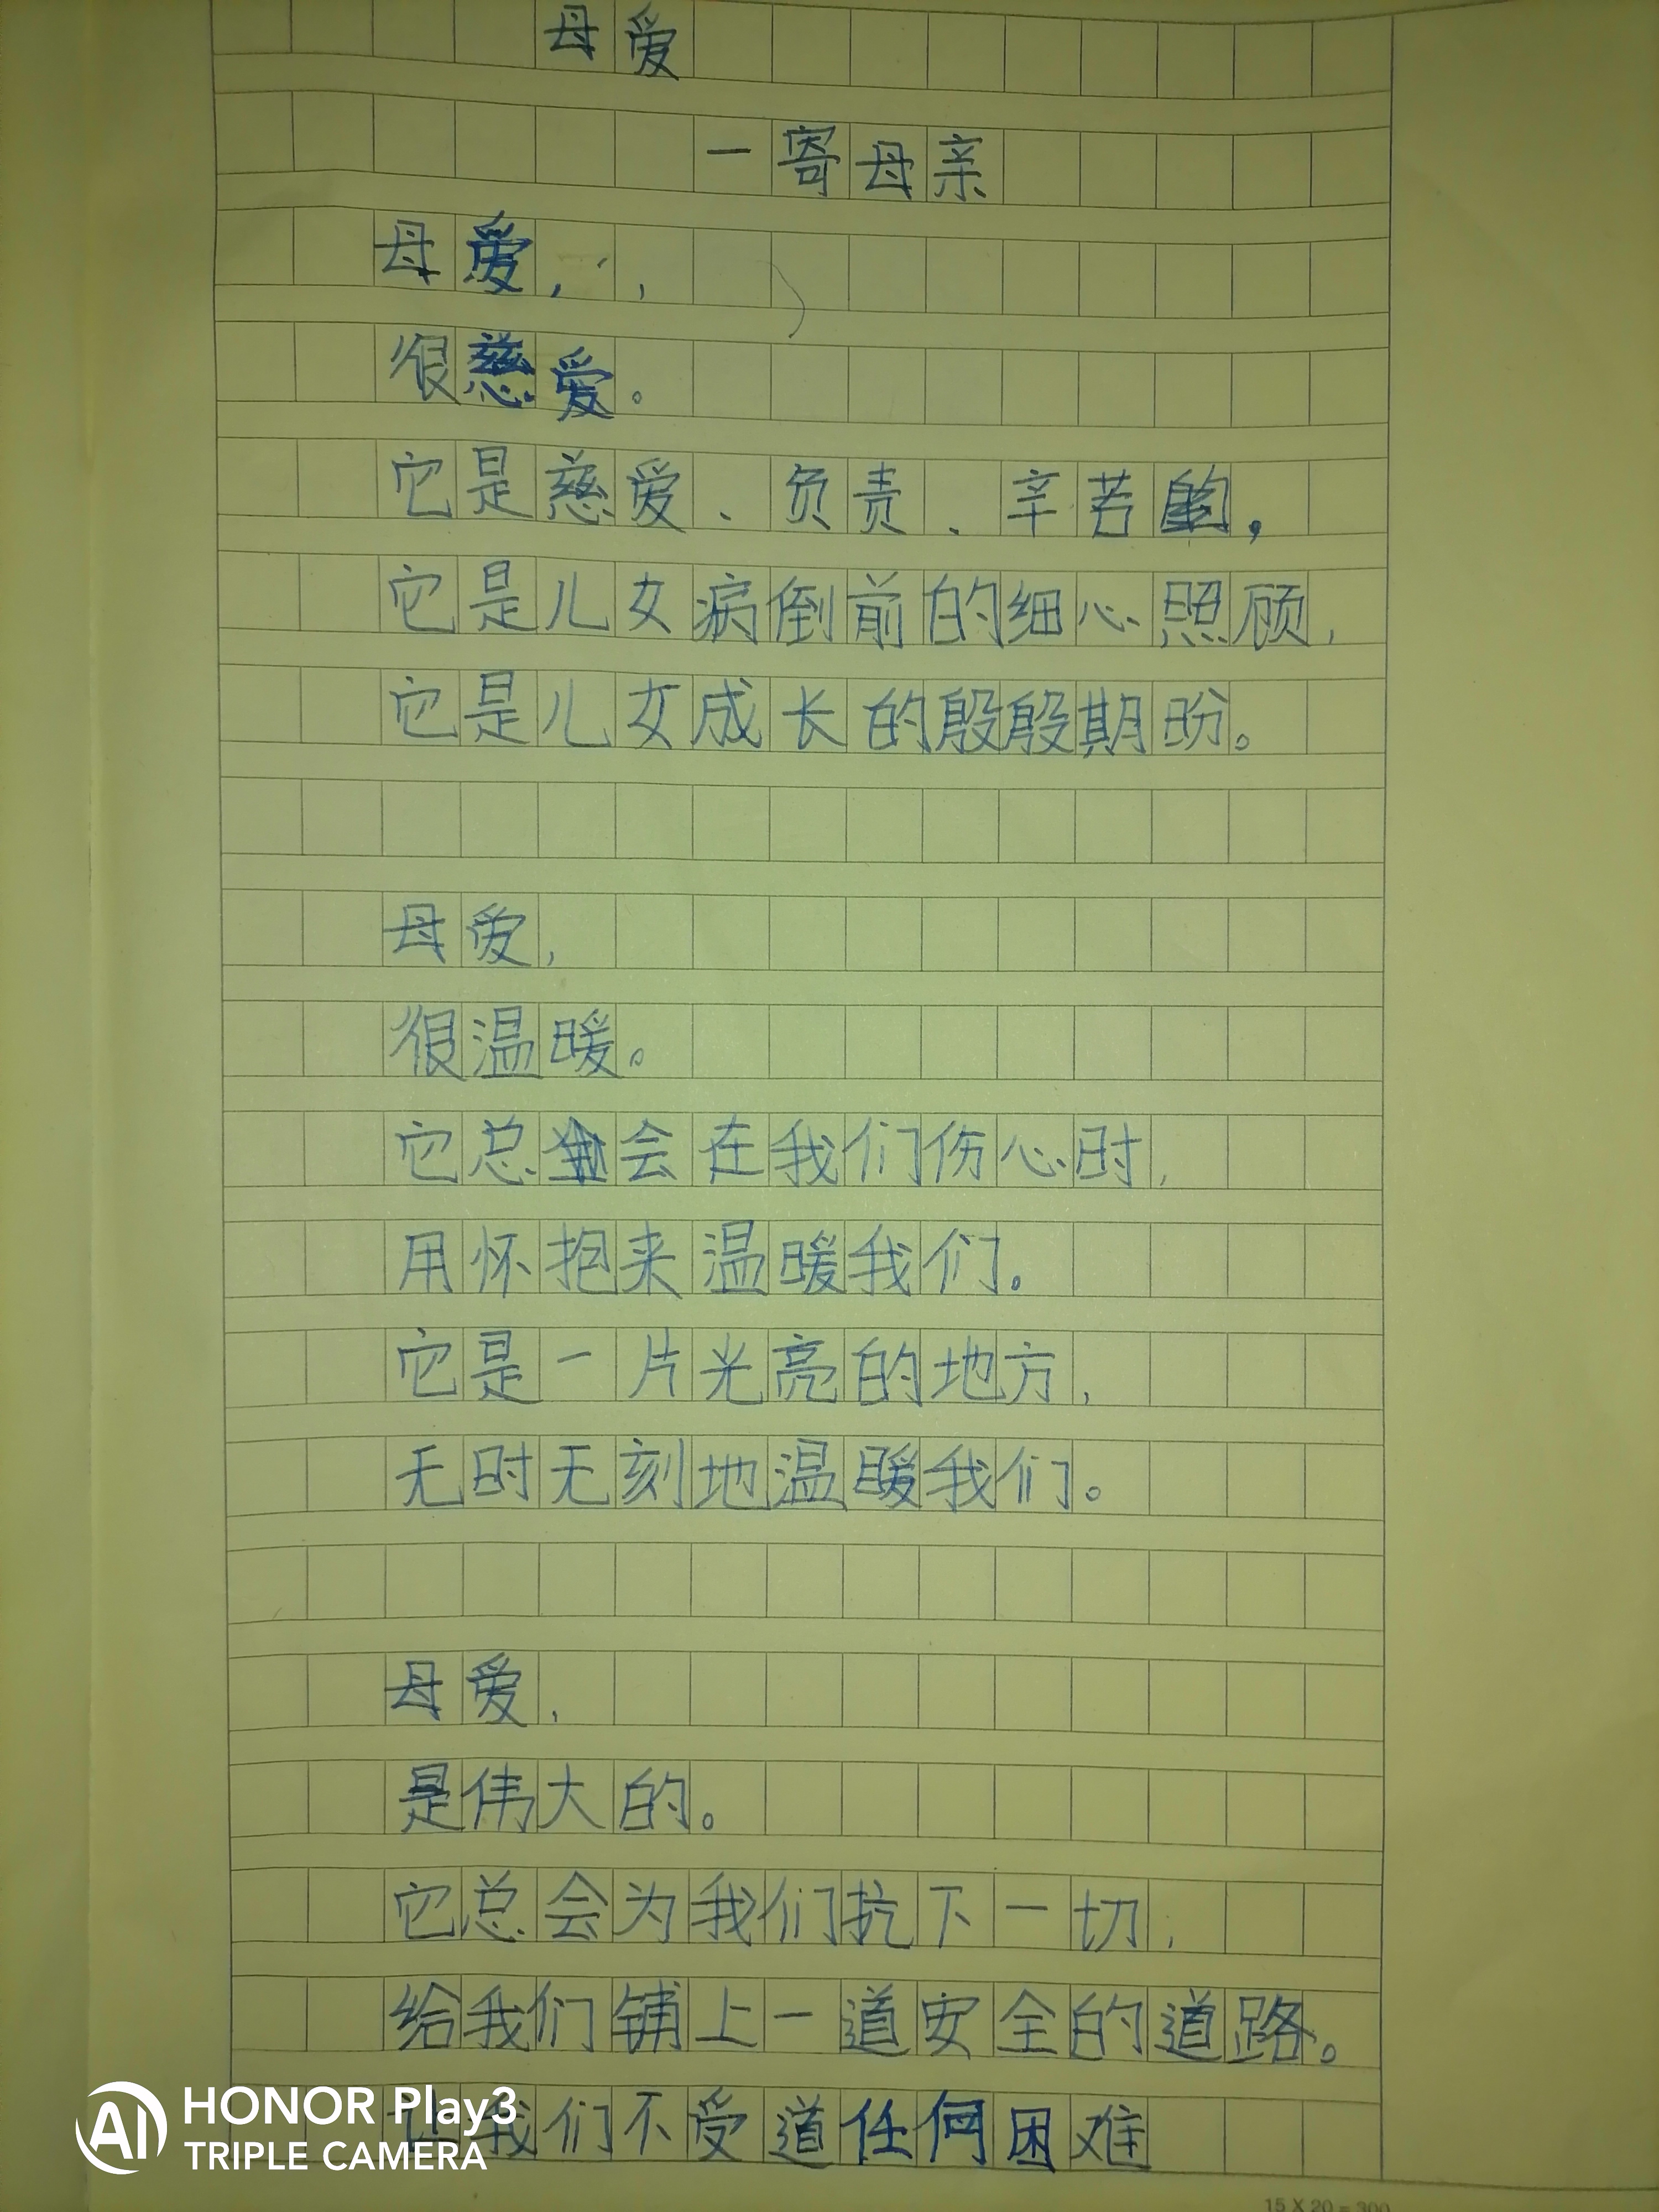 母爱
一寄母亲
母爱，，
很慈爱。
它是慈爱、负责、辛苦的，
它是儿女病倒前的细心照顾，
它是儿女成长的殷殷期盼。
母爱，
很温暖。
它总会在我们伤心时，
用怀抱来温暖我们。
它是一片光亮的地方，
无时无刻地温暖我们。
母爱，
是伟大的。
它总会为我们抗下一切，
给我们铺上一道安全的道路。
让我们不受道任何困难
HONOR Play3
TRIPLE CAMERA
15 X 20 = 300